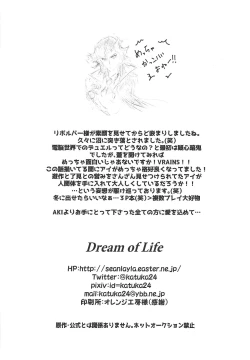 めっちゃ
がっこ
えよか!!
リボルバー様が素顔を見せてからどハまりしましたね。
久々に沼に突き落とされました。(笑)
電脳世界でのデュエルってどうなの?と最初は疑心暗鬼
でしたが、蓋を開けてみれば
めっちゃ面白いじゃあないですか!VRAINS!!
この話描いてる間にアイがめっちゃ格好良くなってました!
原作と了見との絡みをさんざん見せつけられてたアイが
人間体を手に入れて大人しくしているだろうか!!
…という妄想が駆け巡っております。(笑)
冬に出せたらいいなぁ…3P本(笑)>複数プレイ大好物
AKIよりお手にとって下さった全ての方に愛を込めて…
Dream of Life
HP:http://seanlayla.easter.ne.jp/
Twitter:@katuka24
pixiv:id=katuka24
mail:katuka24@ybb.ne.jp
印刷所:オレンジ工房様(感謝)
原作・公式とは関係ありません。ネットオークション禁止